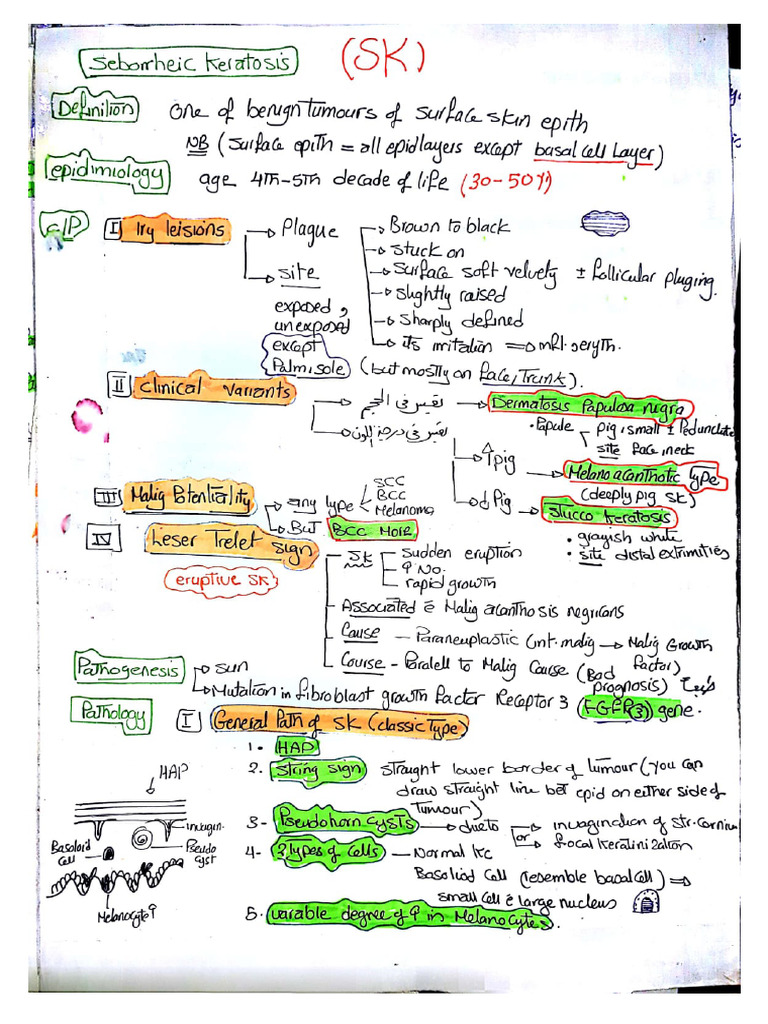 Seborrheic Keratosis (SK)
Definition One of benign tumours of surface skin epith
NB (surface epith = all epid layers except basal cell Layer)
epidimiology age 4th-5th decade of life (30-50 Y)
C/P I 1ry leisions → Plaque → Brown to black
→ stuck on
→ site → surface soft velvety ± follicular pluging.
exposed, → slightly raised
unexposed → sharply defined
except → its irritation ⇒ infl. eryth.
Palm, sole (but mostly on face, Trunk).
II Clinical variants
→ تغير في الحجم → Dermatosis Papulosa negra
• Papule pig, small ± Pedunculated
→ تغير في درجة اللون site face, neck
→ ↑ pig → Melano acanthotic type
(deeply pig SK)
III Malig Potentiality → any type SCC
BCC
Melanoma
→ But BCC More
→ ↓ Pig → Stucco keratosis
• grayish white
• site distal extrimities
IV Leser Trelet sign
eruptive SK
SK sudden eruption
↑ No.
rapid growth
Associated c̄ Malig acanthosis negricans
Cause – Paraneuplastic (int. malig → Malig Growth
factor)
Course – Paralell to Malig Course (Bad
prognosis)
Pathogenesis → sun
→ Mutation in fibroblast growth factor Receptor 3 (FGFR3) gene.
Pathology I General Path of SK (classic type)
1. HAP
2. String sign straight lower border of tumour (you can
draw straight line bet epid on either side of
tumour)
3- Pseudohorn cysts → due to → invagination of str. Cornium
or → focal keratinization
4- 2 types of cells – Normal kc
Basoliod Cell (resemble basal cell) ⇒
small cell c̄ large nucleus
5. variable degree of ↑ in Melanocytes.
HAP
invagin.
Basoloid
cell
Pseudo
cyst
Melanocyte ↑